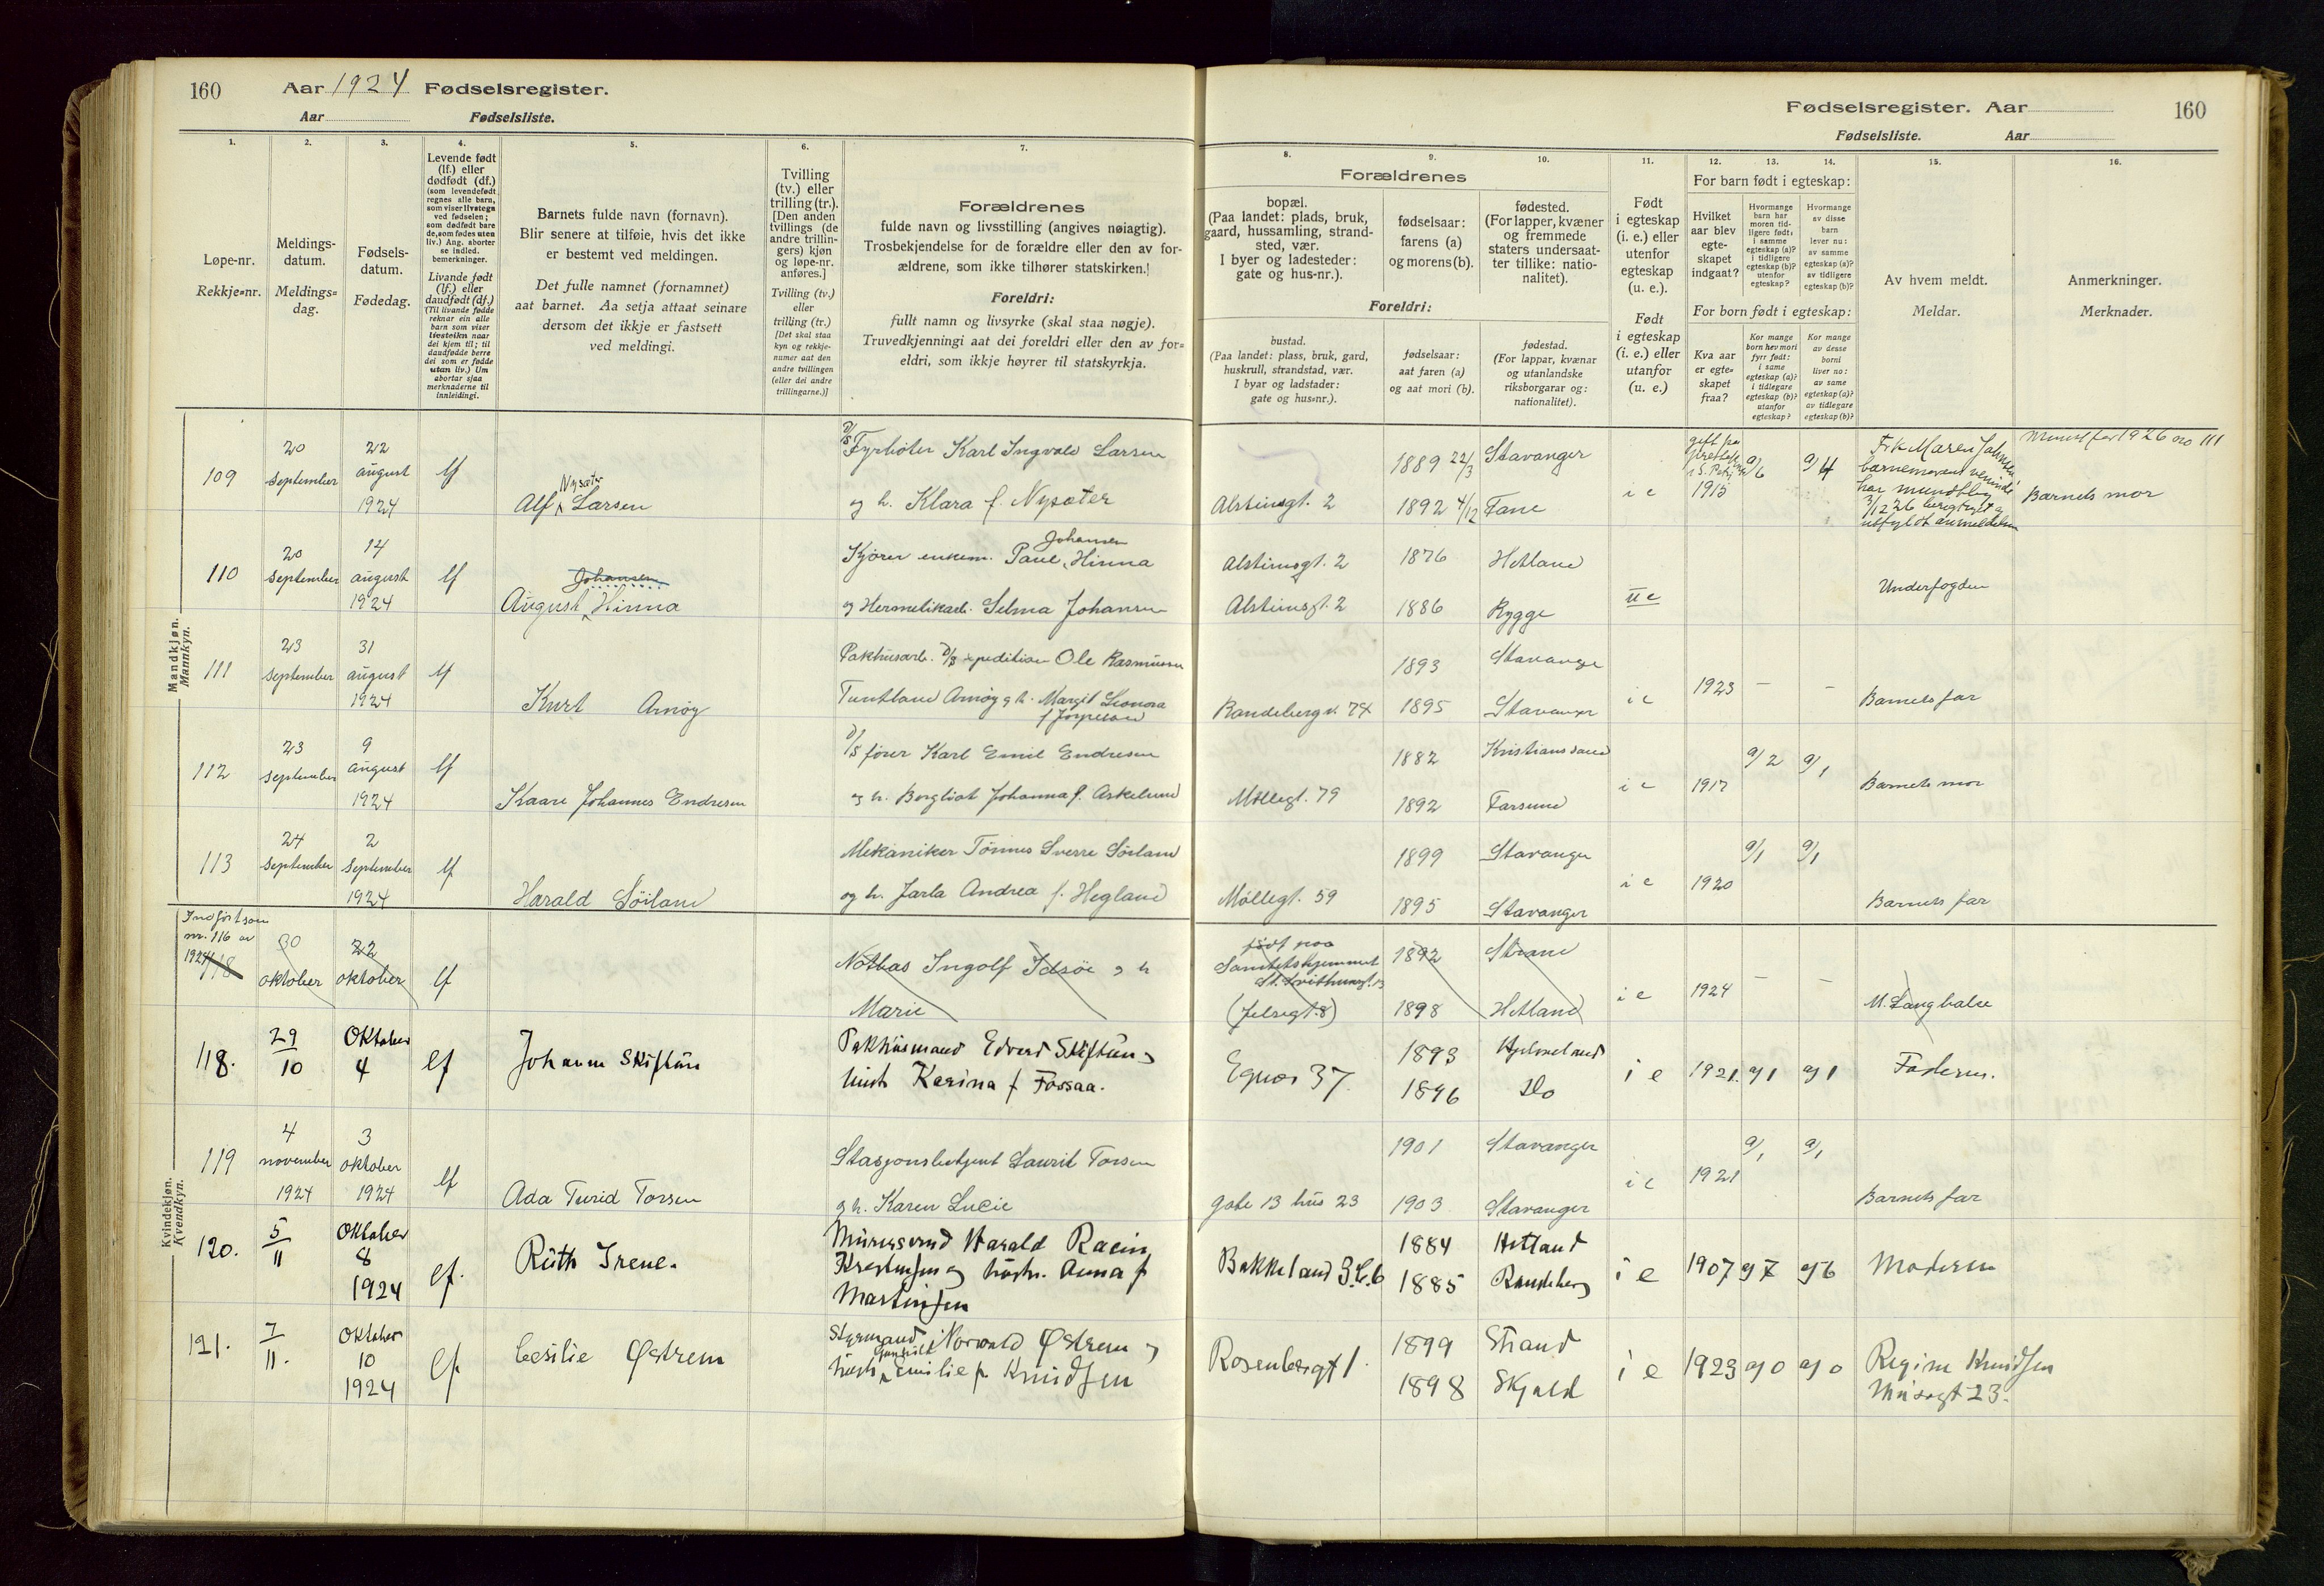 160
Aar 1924 Fødselsregister.
Aar Fødselsliste.
Fødselsregister. Aar
160
Fødselsliste. Aar
1.
2.
3.
4.
5.
6.
7.
8.
9.
10.
11.
12.
13.
14.
15.
16.
Løpe-nr.
Rekkje=nr.
Meldings-
datum.
Meldings=
dag.
Fødsels-
datum.
Fødedag.
Levende født
(lf.) eller
dødfødt (df.)
(som levendefødt
regnes alle barn,
som viser livstegn
ved fødselen;
som dødfødt bare
de, som fødes uten
liv.) Ang. aborter
se indled.
bemerkninger.
Livande født
(lf.) eller
daudfødt (df.)
(Til livande fødde
reknar ein alle
barn som viser
livsteikn naar
dei kjem til; til
daudfødde berre
dei som er fødde
utan liv.) Um
abortar sjaa
merknaderne til
innleidingi.
Barnets fulde navn (fornavn).
Blir senere at tilføie, hvis det ikke
er bestemt ved meldingen.
Det fulle namnet (fornamnet)
aat barnet. Aa setja attaat seinare
dersom det ikkje er fastsett
ved meldingi.
Tvilling
(tv.) eller
trilling (tr.).
[Den anden
tvillings (de
andre trillin-
gers) kjøn
og løpe-nr.
anføres.]
Tvilling (tv.)
eller
trilling (tr.)
[Det skal staa
kyn og rekkje-
numer aat den
andre tvillingen
(eller dei andre
trillingarne.)]
Forældrenes
fulde navn og livsstilling (angives nøiagtig).
Trosbekjendelse for de forældre eller den av for-
ældrene, som ikke tilhører statskirken.
Foreldri:
fullt namn og livsyrke (skal staa nøgje).
Truvedkjenningi aat dei foreldri eller den av for=
eldri, som ikkje høyrer til statskyrkja.
Forældrenes
bopæl.
(Paa landet: plads, bruk,
gaard, hussamling, strand-
sted, vær.
I byer og ladesteder:
gate og hus-nr.).
fødselsaar:
farens (a)
og morens (b).
fødested.
(For lapper, kvæner
og fremmede
staters undersaat-
ter tillike: natio-
nalitet).
Foreldri:
bustad.
(Paa landet: plass, bruk, gard,
huskrull, strandstad, vær.
I byar og ladstader:
gate og hus=nr.).
fødselsaar:
aat faren (a)
og aat mori (b).
fødestad.
(For lappar, kvænar
og utanlandske
riksborgarar og:
nationalitet).
Født
i egteskap
(i. e.) eller
utenfor
egteskap
(u. e.).
Født
i egteskap
(i. e.) eller
utanfor
(u. e.)
For barn født i egteskap:
Hvilket
aar blev
egte-
skapet
indgaat?
Hvormange
barn har
moren tid-
ligere født:
i samme
egteskap (a)?
i tidligere
egteskap (b)?
utenfor
egteskap?
Hvormange
av disse
barn
lever nu:
av samme
egteskap (a)?
av tidligere
egteskap (b)?
For born født i egteskap:
Kva aar
er egte=
skapet
fraa?
Kor mange
born hev mori
fyrr født:
i same
egteskap (a)?
i tidlegare
egteskap (b)?
utanfor
egteskap?
Kor mange
av desse
borni
liver no:
av same
egteskap (a)?
av tidlegare
egteskap (b)?
Av hvem meldt.
Meldar.
Anmerkninger.
Merknader.
Mandkjøn.
Mannkyn.
109
20
September
22
august
1924
lf
Nysæter
Alf Larsen
D/S Fyrbøter Karl Ingvald Larsen
og h. Klara f. Nysæter
Alstinsgt. 2
1889 22/3
1892 4/12
Stavanger
Fane
i e
1915
a/6
a/4
Frk Maren
Barnets mor
110
20
September
14
august
1924
lf
Johansen
August Hinna
Johansen
Kjører enkem. Paul Hinna
og Hermetikarb. Selma Johansen
Alstinsgt. 2
Alstinsgt. 2
1876
1886
Hetland
Rygge
u e
Underfogden
111
23
September
31
august
1924
lf
Kurt Arnøy
Pakhusarb. D/S xpedition Ole Rasmussen
Tuntland Arnøy g h. Margit Leonora
f Jørpeland
Randebergv. 74
1893
1895
Stavanger
Stavanger
i e
1923
–
–
Barnets far
112
23
September
9
august
1924
lf
Kaare Johannes Endresen
D/S fører Karl Emil Endresen
og h. Bergliot Johanna f. Askelund
Møllegt. 79
1882
1892
Kristianssand
Farsund
i e
1917
a/2
a/1
Barnets mor
113
24
September
2
September
1924
lf
Harald Söiland
Mekaniker Tönnes Sverre Söiland
og h. Jarla Andrea f. Hegland
Møllegt. 59
1899
1895
Stavanger
Stavanger
i e
1920
a/1
a/1
Barnets far
Kvindekjøn.
Kvendkyn.
Indført som
nr. 116 av
1924
118
30
oktober
22
oktober
lf
Nothas Ingolf Idsöe g h
Marie
født paa
Sanitetshjemmet
St. Svithunsgt. 13
(Jelsegt. 8)
1892
1898
Strand
Hetland
i e
1924
–
–
M. Langhalse
118.
29
10
Oktober
4
lf
Johanne Skiftun
Pakhusmand Edvard Skiftun og
hust Karina f Fossaa.
Egnes 37.
1893
1896
Hjelmeland
Do
i e
1921.
a 1
a 1
Faderen.
119
4
november
1924
3
oktober
1924
lf
Ada Turid Torsen
Stasjonsbetjent Laurit Torsen
g h. Karen Lucie
gate 13 hus 23
1901
1903
Stavanger
Stavanger
i e
1921
a/1
a/1
Barnets far
120.
5
11
Oktober
8
1924
lf.
Ruth Irene.
Murersvend Harald Racin
Kristensen og hustr. Anna f
Martinsen
Bakkeland 3. C. 6
1884
1885
Hetland
Randeberg
i e
1907
a 7
a 6
Moderen
121.
7
11.
Oktober
10
1924
lf
Cesilie Østrem
Styrmand Norvald Østrem og
hustr Gunhild Emilie f. Knudsen
Rosenbergt 1.
1899
1898
Strand
Skjold
i e
1923
a 0
a 0
Regine Knudsen
Musegt 23.